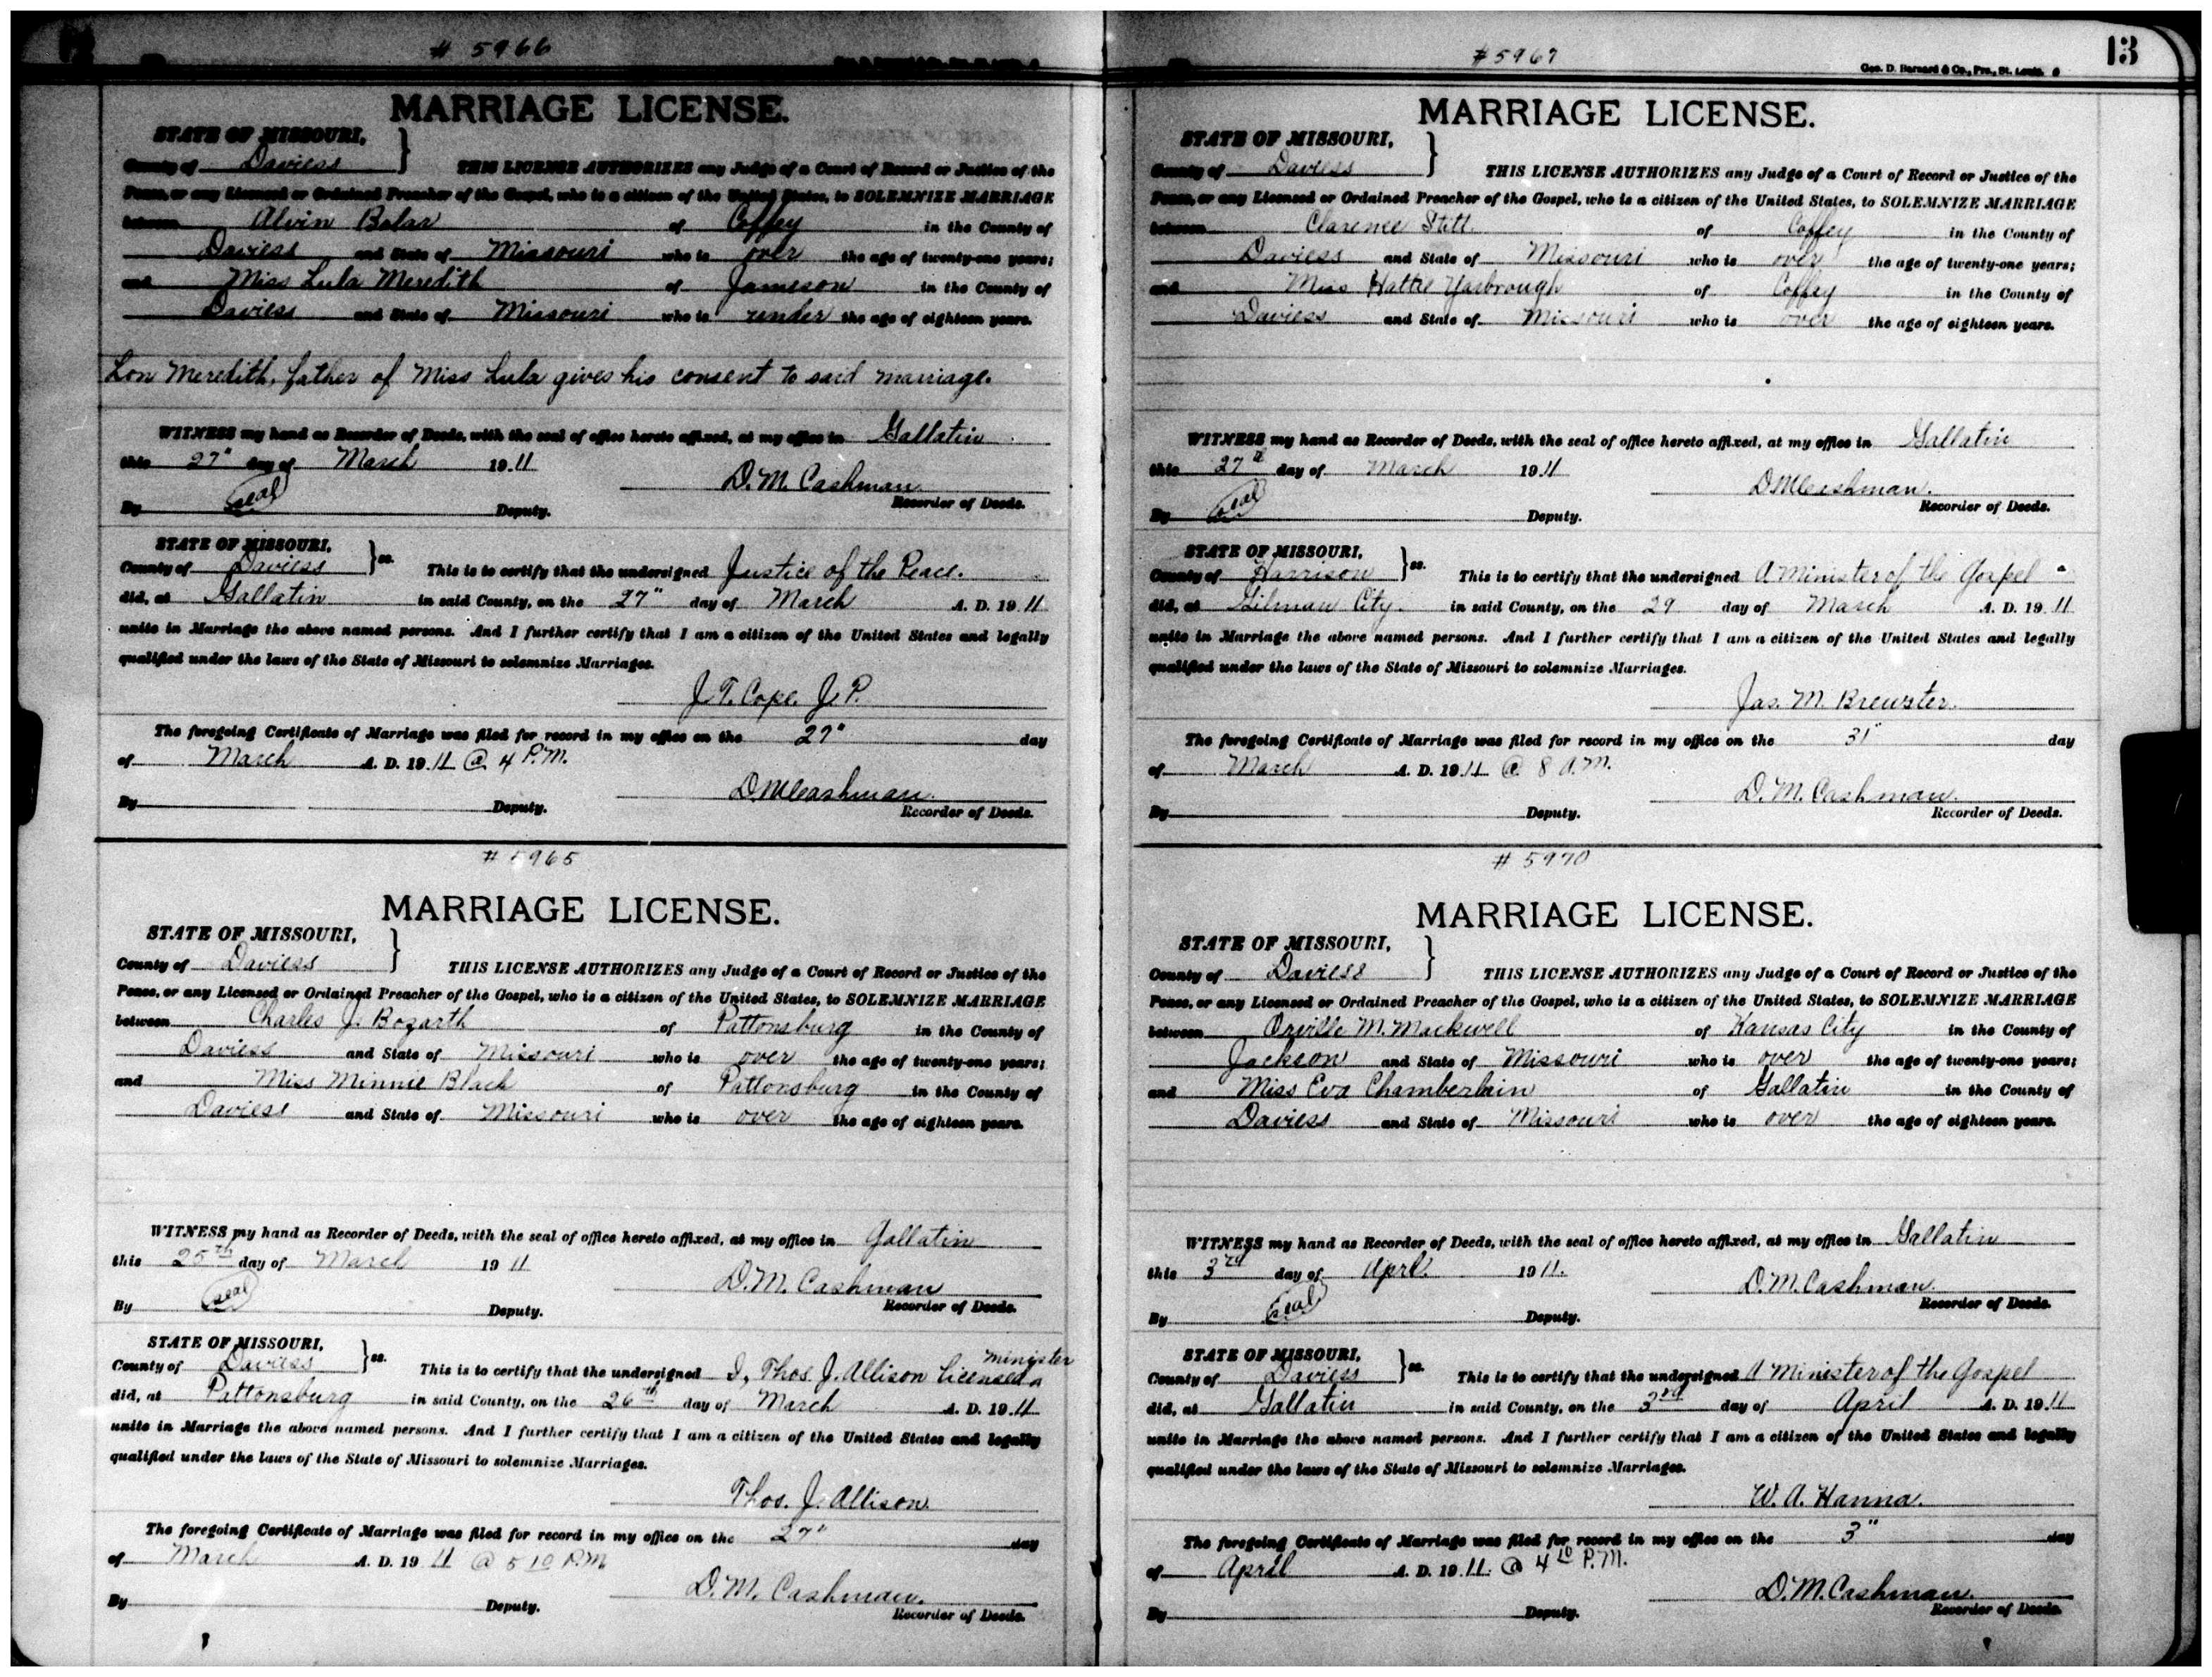 # 5966
MARRIAGE LICENSE.
STATE OF MISSOURI,
County of Daviess } THIS LICENSE AUTHORIZES any Judge of a Court of Record or Justice of the
Peace, or any Licensed or Ordained Preacher of the Gospel, who is a citizen of the United States, to SOLEMNIZE MARRIAGE
between Alvin Bolar of Coffey in the County of
Daviess and State of Missouri who is over the age of twenty-one years;
and Miss Lula Meredith of Jameson in the County of
Daviess and State of Missouri who is under the age of eighteen years.
Lon Meredith, father of Miss Lula gives his consent to said marriage.
WITNESS my hand as Recorder of Deeds, with the seal of office hereto affixed, at my office in Gallatin
this 27" day of March 1911
D. M. Cashman
Recorder of Deeds.
By (seal) Deputy.
STATE OF MISSOURI,
County of Daviess } ss. This is to certify that the undersigned Justice of the Peace.
did, at Gallatin in said County, on the 27" day of March A. D. 1911
unite in Marriage the above named persons. And I further certify that I am a citizen of the United States and legally
qualified under the laws of the State of Missouri to solemnize Marriages.
J. T. Cope. J. P.
The foregoing Certificate of Marriage was filed for record in my office on the 27" day
of March A. D. 1911 @ 4 P.M.
D. M. Cashman.
By Deputy. Recorder of Deeds.
# 5965
MARRIAGE LICENSE.
STATE OF MISSOURI,
County of Daviess } THIS LICENSE AUTHORIZES any Judge of a Court of Record or Justice of the
Peace, or any Licensed or Ordained Preacher of the Gospel, who is a citizen of the United States, to SOLEMNIZE MARRIAGE
between Charles J. Bozarth of Pattonsburg in the County of
Daviess and State of Missouri who is over the age of twenty-one years;
and Miss Minnie Black of Pattonsburg in the County of
Daviess and State of Missouri who is over the age of eighteen years.
WITNESS my hand as Recorder of Deeds, with the seal of office hereto affixed, at my office in Gallatin
this 25th day of March 1911
D. M. Cashman
Recorder of Deeds.
By (seal) Deputy.
STATE OF MISSOURI,
County of Daviess } ss. This is to certify that the undersigned I, Thos. J. Allison Licensed minister
did, at Pattonsburg in said County, on the 26th day of March A. D. 1911
unite in Marriage the above named persons. And I further certify that I am a citizen of the United States and legally
qualified under the laws of the State of Missouri to solemnize Marriages.
Thos. J. Allison.
The foregoing Certificate of Marriage was filed for record in my office on the 27" day
of March A. D. 1911 @ 5 10 P.M
D. M. Cashman.
By Deputy. Recorder of Deeds.
# 5967
13
Geo. D. Barnard & Co., Pro., St. Louis.
MARRIAGE LICENSE.
STATE OF MISSOURI,
County of Daviess } THIS LICENSE AUTHORIZES any Judge of a Court of Record or Justice of the
Peace, or any Licensed or Ordained Preacher of the Gospel, who is a citizen of the United States, to SOLEMNIZE MARRIAGE
between Clarence Stitt of Coffey in the County of
Daviess and State of Missouri who is over the age of twenty-one years;
and Miss Hattie Yarbrough of Coffey in the County of
Daviess and State of Missouri who is over the age of eighteen years.
WITNESS my hand as Recorder of Deeds, with the seal of office hereto affixed, at my office in Gallatin
this 27th day of March 1911
D. M. Cashman.
Recorder of Deeds.
By (seal) Deputy.
STATE OF MISSOURI,
County of Harrison } ss. This is to certify that the undersigned A Minister of the Gospel
did, at Gilman City. in said County, on the 29 day of March A. D. 1911
unite in Marriage the above named persons. And I further certify that I am a citizen of the United States and legally
qualified under the laws of the State of Missouri to solemnize Marriages.
Jas. M. Brewster.
The foregoing Certificate of Marriage was filed for record in my office on the 31" day
of March A. D. 1911 @ 8 A.M.
D. M. Cashman.
By Deputy. Recorder of Deeds.
# 5970
MARRIAGE LICENSE.
STATE OF MISSOURI,
County of Daviess } THIS LICENSE AUTHORIZES any Judge of a Court of Record or Justice of the
Peace, or any Licensed or Ordained Preacher of the Gospel, who is a citizen of the United States, to SOLEMNIZE MARRIAGE
between Orville M. Mackwell of Kansas City in the County of
Jackson and State of Missouri who is over the age of twenty-one years;
and Miss Eva Chamberlain of Gallatin in the County of
Daviess and State of Missouri who is over the age of eighteen years.
WITNESS my hand as Recorder of Deeds, with the seal of office hereto affixed, at my office in Gallatin
this 3rd day of April. 1911.
D. M. Cashman.
Recorder of Deeds.
By (seal) Deputy.
STATE OF MISSOURI,
County of Daviess } ss. This is to certify that the undersigned A Minister of the Gospel
did, at Gallatin in said County, on the 3rd day of April A. D. 1911
unite in Marriage the above named persons. And I further certify that I am a citizen of the United States and legally
qualified under the laws of the State of Missouri to solemnize Marriages.
W. A. Hanna.
The foregoing Certificate of Marriage was filed for record in my office on the 3" day
of April A. D. 1911. @ 4 10 P.M.
D. M. Cashman.
By Deputy. Recorder of Deeds.